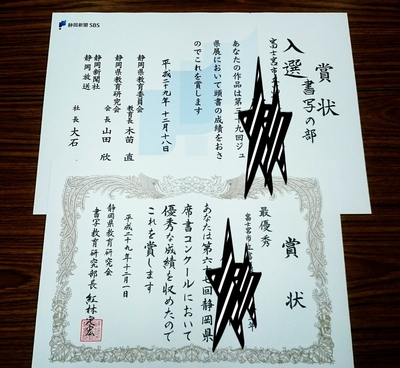 静岡新聞SBS
賞状
書写の部
入選
富士宮市
あなたの作品は第三十九回ジュ
県展において頭書の成績をおさ
のでこれを賞します
平成二十九年十二月十八日
静岡県教育委員会
教育長 木苗 直
静岡県教育研究会
会長 山田 欣
静岡新聞社
静岡放送
社長 大石
賞状
最優秀
富士宮市
あなたは第六十回静岡県
席書コンクールにおいて
優秀な成績を収めたので
これを賞します
平成二十九年十二月一日
静岡県教育研究会
書写教育研究部長 紅林